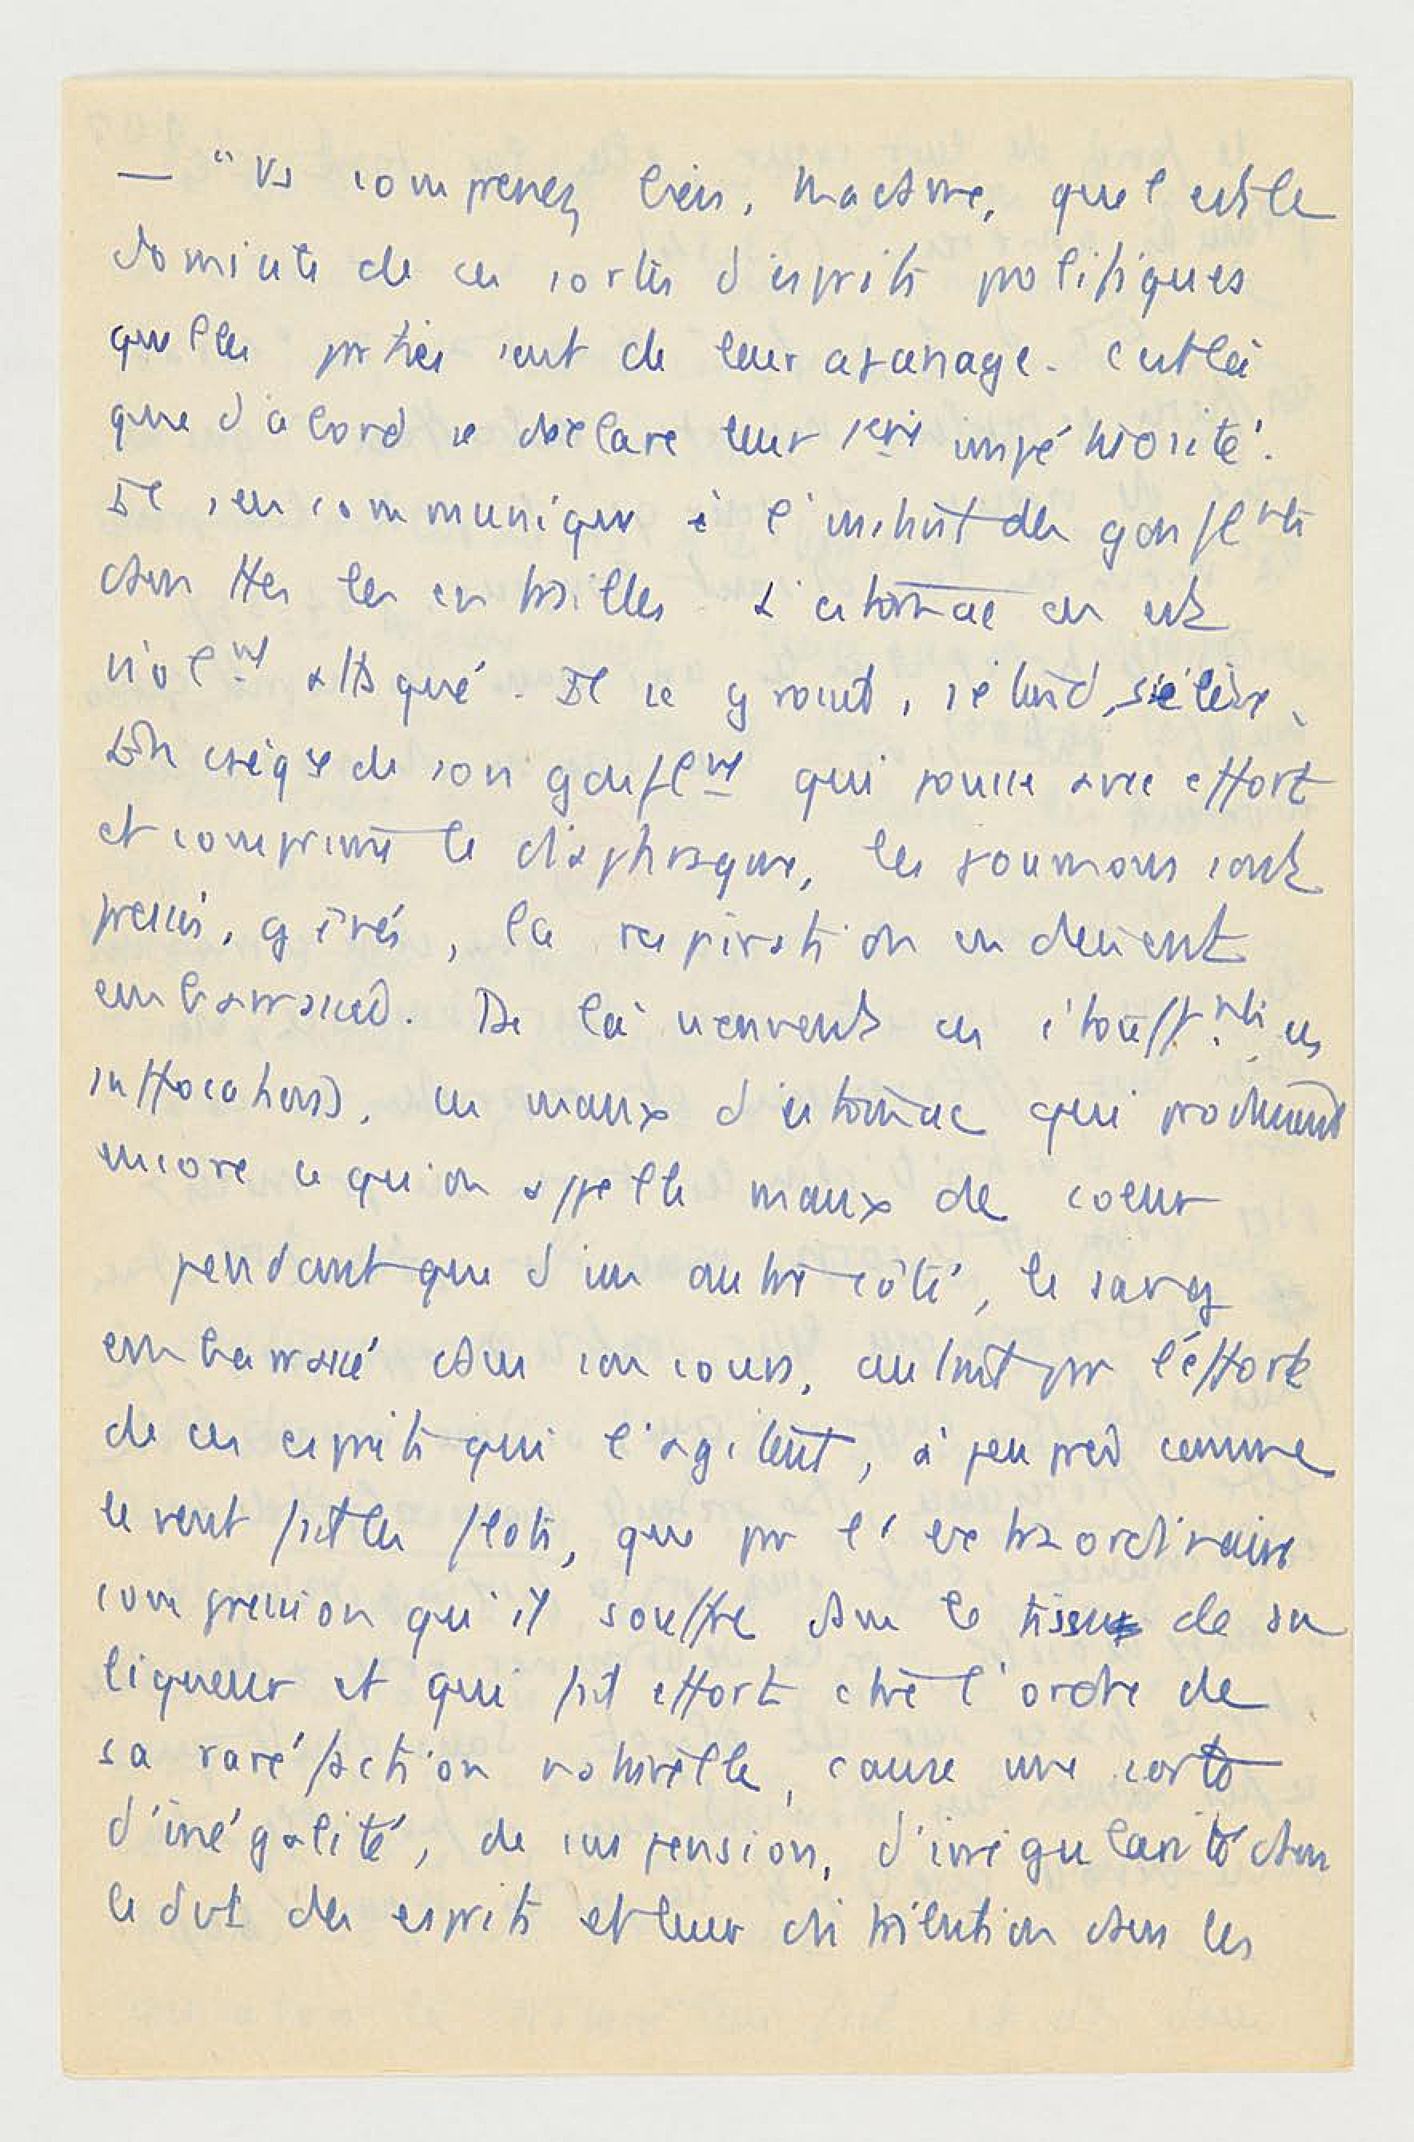 — "Vs comprenez bien, Madame, quel est le
domicile de ces sortes d'esprits politiques
quelles pties sont de leur apanage. C'est là
que d'abord se déclare leur 1ère
Il s'en communique à l'instant des gonflmts
dans ttes les entrailles. L'estomac en est
violmt attaqué. Il se grossit, s'étend, s'élève.
de son gonflmt qui pousse avec effort
et comprime le diaphragme, les poumons sont
pressés, gênés, la respiration en devient
embarrassée. De là viennent ces étouffmts, ces
suffocations, ces maux d'estomac qui produisent
encore ce qu'on appelle maux de coeur
pendant que d'un autre côté, le sang
embarrassé dans son cours, autant pr l'effort
de ces esprits qui l'agitent, à peu près comme
le vent fait les flots, que pr l'extraordinaire
compression qu'il souffre dans le tissu de sa
liqueur et qui fait effort ctre l'ordre de
sa raréfaction naturelle, cause une sorte
d'inégalité, de suspension, d'irrégularité dans
le des esprits et leur distribution dans les